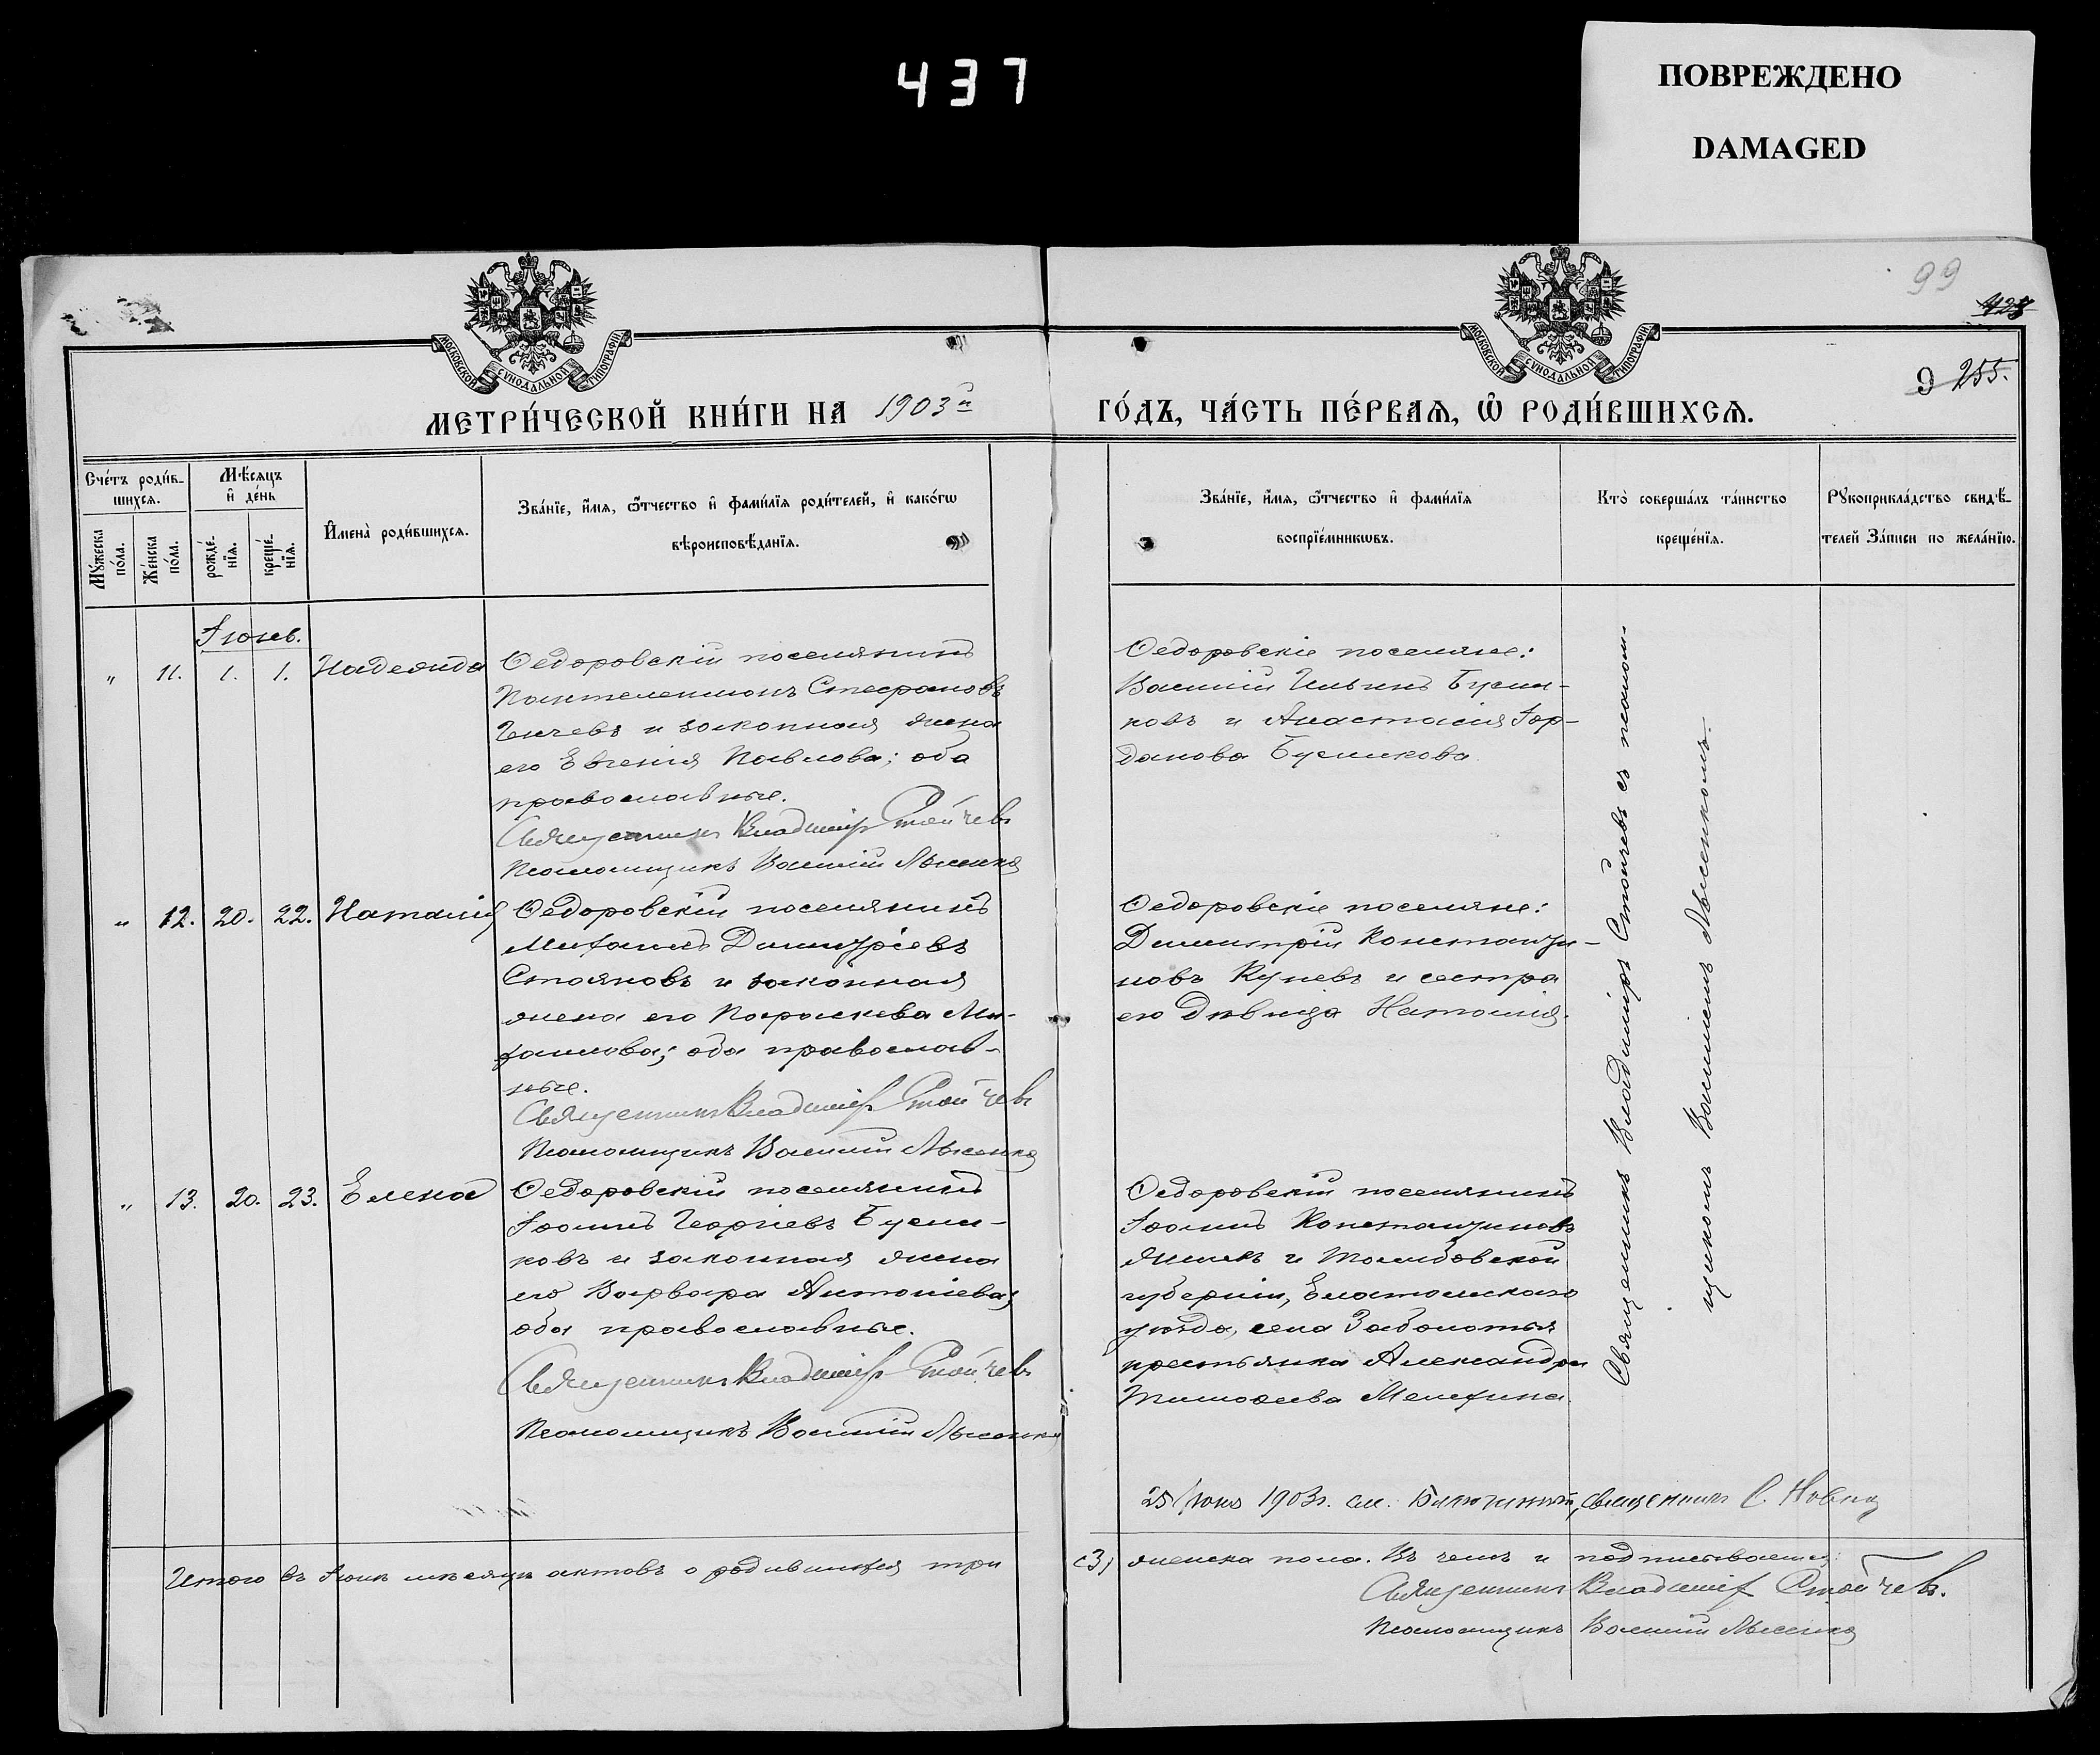 437
ПОВРЕЖДЕНО
DAMAGED
99
255.
МОСКОВСКОЙ СѴНОДАЛЬНОЙ ТИПОГРАФІИ
МОСКОВСКОЙ СѴНОДАЛЬНОЙ ТИПОГРАФІИ
МЕТРИ́ЧЕСКОЙ КНИ́ГИ НА 1903й ГО́ДЪ, ЧА́СТЬ ПЕ́РВАѦ, Ѡ РОДИ́ВШИХСѦ.
Сче́тъ роди́в-
шихсѧ.
Мѣ́сѧцъ
и҆ де́нь
Мꙋ́жеска
по́ла.
Же́нска
по́ла.
рожде́-
нїѧ.
креще́-
нїѧ.
И҆мена̀ роди́вшихсѧ.
Зва́нїе, и҆́мѧ, ѻ҆́тчество и҆ фами́лїѧ роди́телей, и҆ како́гѡ
вѣроисповѣ́данїѧ.
Зва́нїе, и҆́мѧ, ѻ҆́тчество и҆ фами́лїѧ
воспрїе́мникѡвъ.
Кто̀ соверша́лъ та́инство
креще́нїѧ.
Рꙋкоприкла́дство свидѣ́-
телей За́писи по жела́нїю.
Іюнь.
" 11. 1. 1. Надежда Ѳедоровскій поселянинъ
Пантелеимонъ Стефановъ
и законная жена
его Евгенія Павлова; оба
православные.
Священникъ Владиміръ Стойчевъ
Псаломщикъ Василій Лысенко
Ѳедоровскіе поселяне:
Василій Ильинъ Бусли-
ковъ и Анастасія Іор-
данова Бусликова.
" 12. 20. 22. Наталія Ѳедоровскій поселянинъ
Михаилъ Димитріевъ
Стояновъ и законная
жена его Параскева Ми-
хаилова; оба православ-
ные.
Священникъ Владиміръ Стойчевъ
Псаломщикъ Василій Лысенко
Ѳедоровскіе поселяне:
Димитрій Константи-
новъ Куневъ и сестра
его дѣвица Наталія.
" 13. 20. 23. Елена Ѳедоровскій поселянинъ
Іоаннъ Георгіевъ Бусли-
ковъ и законная жена
его Варвара Антоніева;
оба православные.
Священникъ Владиміръ Стойчевъ
Псаломщикъ Василій Лысенко
Ѳедоровскій поселянинъ
Іоаннъ Константиновъ
и Тамбовской
губерніи, Елатомскаго
уѣзда, села Заболотья
крестьянка Александра
Тимоѳеева
Священникъ Владиміръ Стойчевъ съ псалом-
щикомъ Василіемъ Лысенкомъ.
25 Іюня 1903г. см. Благочинный, священникъ С.
Итого въ Іюнѣ мѣсяцѣ актовъ о родившихся три (3) женска пола. Въ чемъ и подписываемся:
Священникъ Владиміръ Стойчевъ.
Псаломщикъ Василій Лысенко